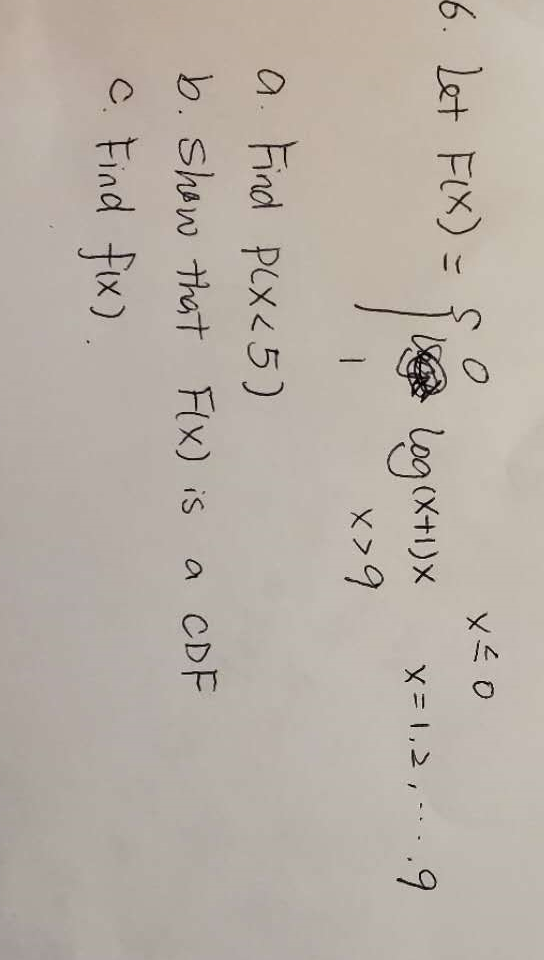 6. Let F(x) = { 0 x ≤ 0
log(x+1)x x = 1, 2, ..... 9
1 x > 9
a. Find P(X < 5)
b. Show that F(x) is a CDF
c. Find f(x).